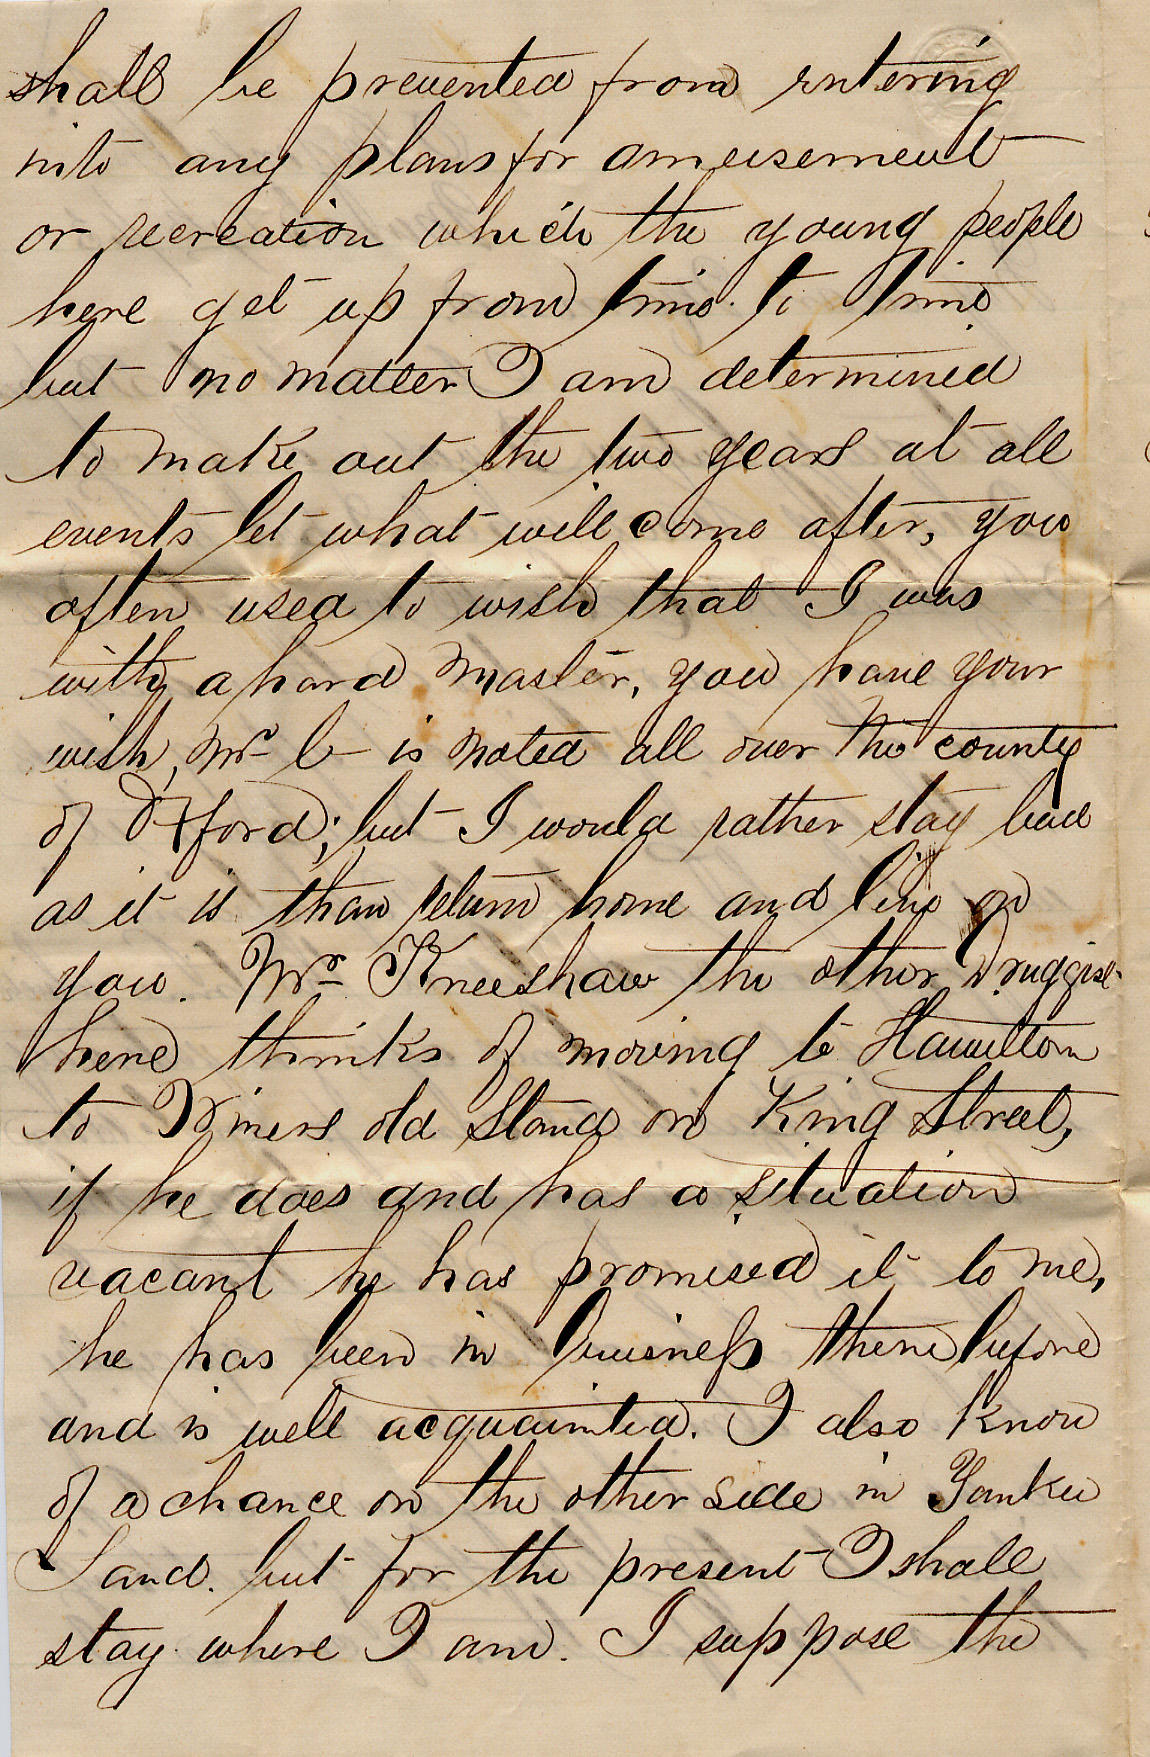 shall be prevented from entering
into any plans for amusement
or recreation which the young people
here get up from time to time
but no matter I am determined
to make out the two years at all
events let what will come after, you
often used to wish that I was
with a hard master, you have your
wish, Mr C is noted all over the county
of Oxford; but I would rather stay bad
as it is than return home and live on
you. Mr Kneeshaw the other Druggist
here thinks of moving to Hamilton
to old Stand on King Street,
if he does and has a situation
vacant he has promised it to me,
he has been in business there before
and is well acquainted. I also know
of a chance on the other side in Yankee
Land. but for the present I shall
stay where I am. I suppose the